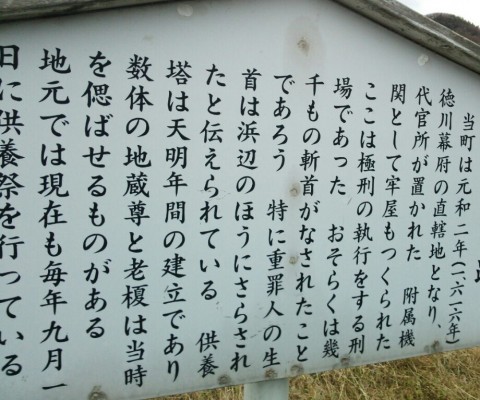 当町は元和二年(一六一六年)
徳川幕府の直轄地となり、
代官所が置かれた　附属機
関として牢屋もつくられた
ここは極刑の執行をする刑
場であった　おそらくは幾
千もの斬首がなされたこと
であろう　特に重罪人の生
首は浜辺のほうにさらされ
たと伝えられている　供養
塔は天明年間の建立であり
数体の地蔵尊と老榎は当時
を偲ばせるものがある
地元では現在も毎年九月一
日に供養祭を行っている